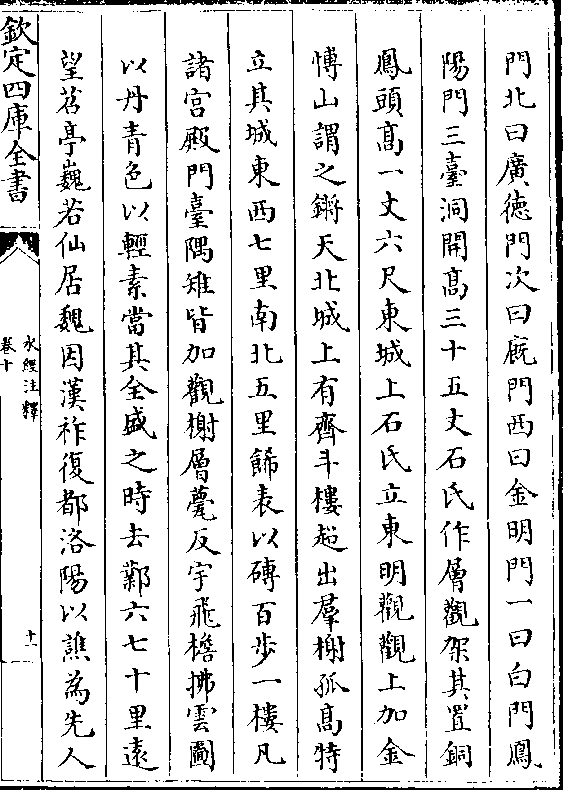 門北曰廣徳門次曰廐門西曰金明門一曰白門鳳
陽門三臺洞開髙三十五丈石氏作層觀架其置銅
鳳頭髙一丈六尺東城上石氏立東明觀觀上加金
愽山謂之鏘天北城上有齊斗樓超出羣榭孤髙特
立其城東西七里南北五里飾表以磚百步一樓凡
諸宫殿門臺隅雉皆加觀榭層甍反宇飛檐拂雲圖
以丹青色以輕素當其全盛之時去鄴六七十里逺
望苕亭巍若仙居魏因漢祚復都洛陽以譙為先人
欽定四庫全書
水經注釋
卷十
十一